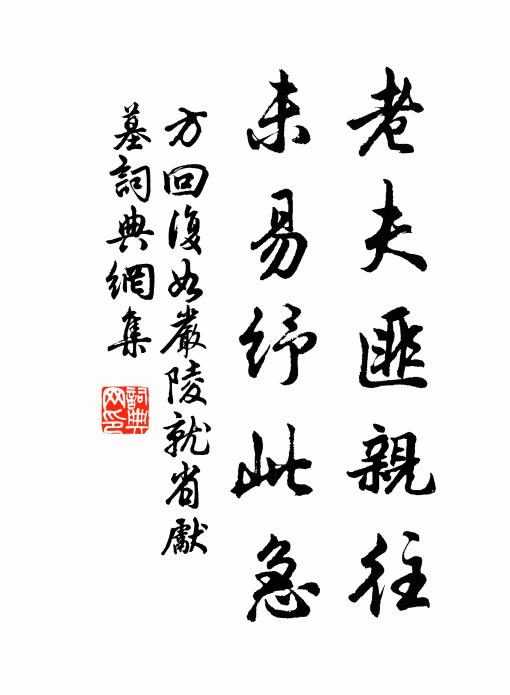 老夫匪親往
未易紓此急
方回復如嚴陵就省獻
墓詞典網集
詞典
网印